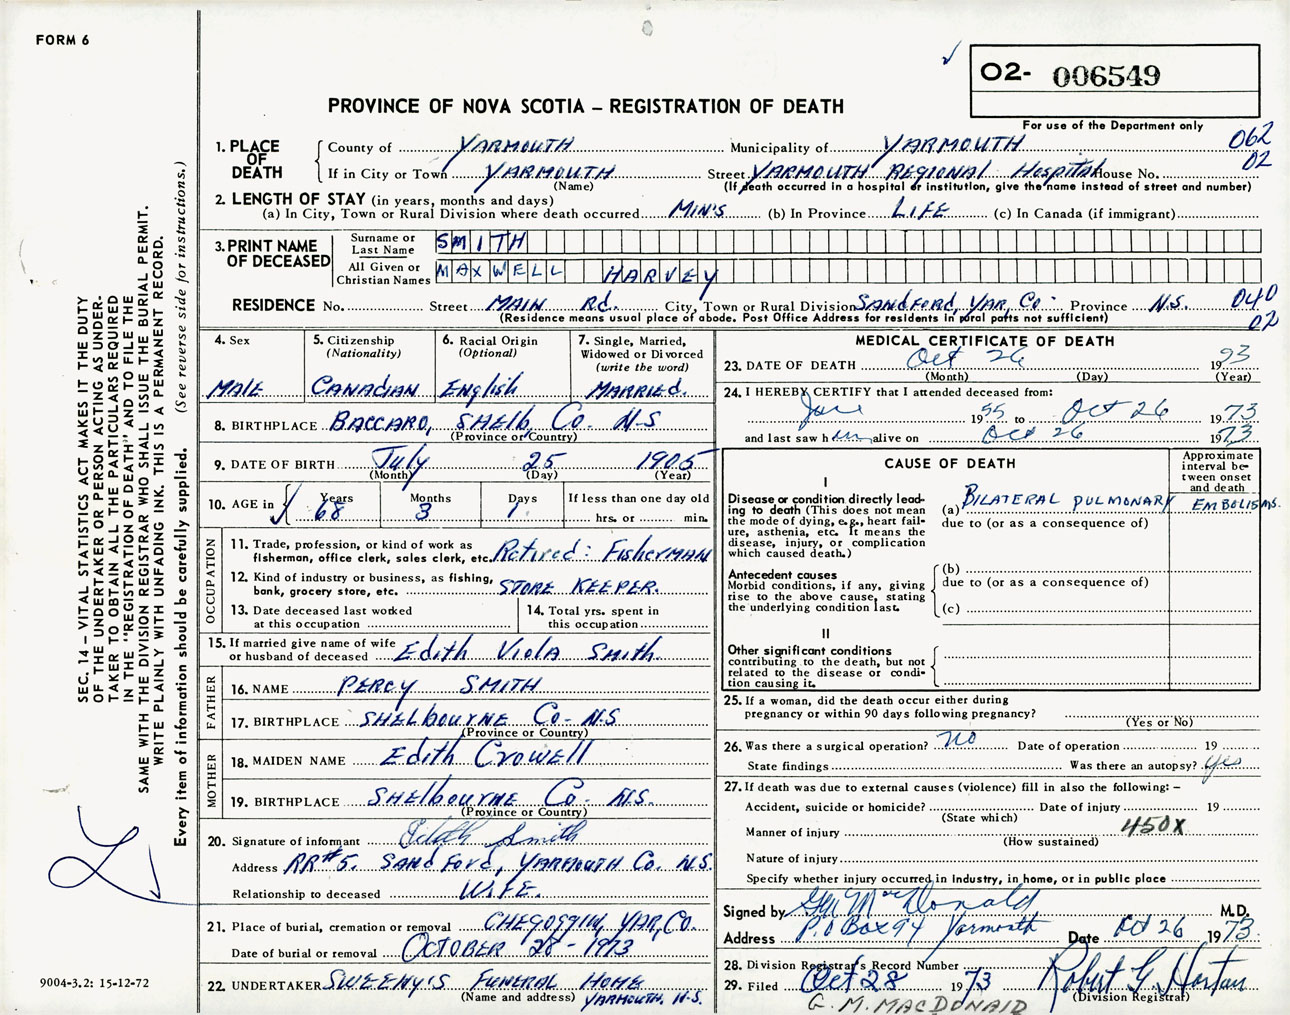 FORM 6
O2- 006549
PROVINCE OF NOVA SCOTIA – REGISTRATION OF DEATH
For use of the Department only
1. PLACE OF DEATH
County of YARMOUTH Municipality of YARMOUTH 062
If in City or Town YARMOUTH Street YARMOUTH REGIONAL Hospital House No. 02
(Name) (If death occurred in a hospital or institution, give the name instead of street and number)
2. LENGTH OF STAY (in years, months and days)
(a) In City, Town or Rural Division where death occurred MIN'S (b) In Province LIFE (c) In Canada (if immigrant)
3. PRINT NAME OF DECEASED
Surname or Last Name SMITH
All Given or Christian Names MAXWELL HARVEY
RESIDENCE No. Street MAIN Rd. City, Town or Rural Division SANDFORD, YAR, Co. Province N.S. 040
(Residence means usual place of abode. Post Office Address for residents in rural parts not sufficient) 02
4. Sex MALE
5. Citizenship (Nationality) CANADIAN
6. Racial Origin (Optional) English
7. Single, Married, Widowed or Divorced (write the word) MARRIED.
8. BIRTHPLACE BACCARO, SHELB, Co. N-S
(Province or Country)
9. DATE OF BIRTH July 25 1905
(Month) (Day) (Year)
10. AGE in Years 68 Months 3 Days 1 If less than one day old
hrs. or min.
OCCUPATION
11. Trade, profession, or kind of work as fisherman, office clerk, sales clerk, etc. Retired: FishERMAN
12. Kind of industry or business, as fishing, bank, grocery store, etc. STORE KEEPER.
13. Date deceased last worked at this occupation
14. Total yrs. spent in this occupation
15. If married give name of wife or husband of deceased Edith Viola Smith.
FATHER
16. NAME PERCY SMITH
17. BIRTHPLACE SHELbOURNE Co- N.S
(Province or Country)
MOTHER
18. MAIDEN NAME Edith CROWEll
19. BIRTHPLACE SHElbOURNE Co- N.S.
(Province or Country)
20. Signature of informant Edith Smith
Address RR#5. SANDFORd, YARMOUTH Co. N.S.
Relationship to deceased WIFE.
21. Place of burial, cremation or removal CHEGOGGIN, YAR, Co.
Date of burial or removal OCTOBER 28-1973
22. UNDERTAKER SWEENY'S FUNERAL HOME
(Name and address) YARMOUTH, N.S.
MEDICAL CERTIFICATE OF DEATH
23. DATE OF DEATH Oct 26 1973
(Month) (Day) (Year)
24. I HEREBY CERTIFY that I attended deceased from:
1955 to Oct 26 1973
and last saw him alive on Oct 26 1973
CAUSE OF DEATH
Approximate interval between onset and death
I
Disease or condition directly leading to death (This does not mean the mode of dying, e.g., heart failure, asthenia, etc. It means the disease, injury, or complication which caused death.)
(a) BILATERAL PULMONARY EMBOLISMS.
due to (or as a consequence of)
Antecedent causes
Morbid conditions, if any, giving rise to the above cause, stating the underlying condition last.
(b)
due to (or as a consequence of)
(c)
II
Other significant conditions
contributing to the death, but not related to the disease or condition causing it.
25. If a woman, did the death occur either during pregnancy or within 90 days following pregnancy?
(Yes or No)
26. Was there a surgical operation? no Date of operation 19
State findings Was there an autopsy? yes
27. If death was due to external causes (violence) fill in also the following: –
Accident, suicide or homicide? Date of injury 19
(State which)
Manner of injury 450X
(How sustained)
Nature of injury
Specify whether injury occurred in industry, in home, or in public place
Signed by GM MacDonald M.D.
Address P.O Box 94 Yarmouth Date Oct 26 1973
28. Division Registrar's Record Number
29. Filed Oct 28 1973 Robert G. Horton
(Division Registrar)
G. M. MACDONALD
SEC. 14 – VITAL STATISTICS ACT MAKES IT THE DUTY
OF THE UNDERTAKER OR PERSON ACTING AS UNDER-
TAKER TO OBTAIN ALL THE PARTICULARS REQUIRED
IN THE "REGISTRATION OF DEATH" AND TO FILE THE
SAME WITH THE DIVISION REGISTRAR WHO SHALL ISSUE THE BURIAL PERMIT.
WRITE PLAINLY WITH UNFADING INK. THIS IS A PERMANENT RECORD.
Every item of information should be carefully supplied. (See reverse side for instructions.)
9004-3.2: 15-12-72